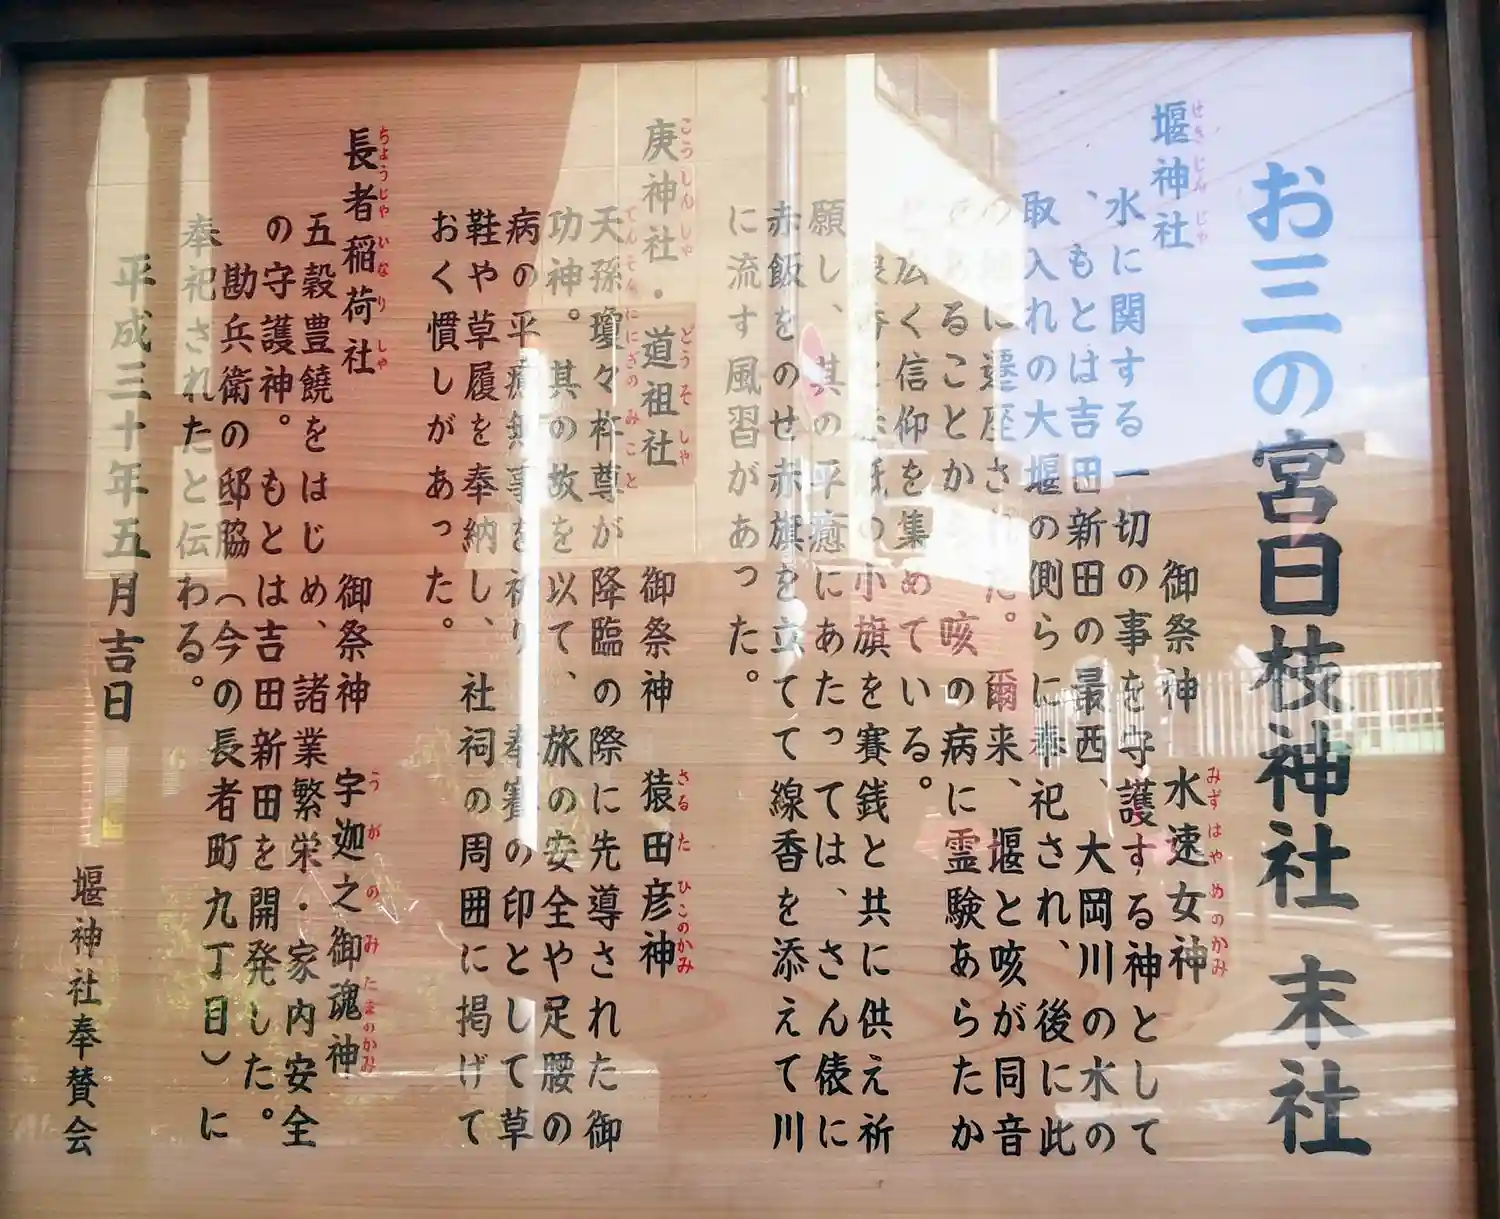 お三の宮日枝神社 末社
堰神社 御祭神 水速女神
せきじんじゃ みずはやめのかみ
水に関する一切の事を守護する神として
、もとは吉田新田の最西、大岡川の水の
取入れの大堰の側らに奉祀され、後に此
の地に遷座された。爾来、堰と咳が同音
であることから、咳の病に霊験あらたか
広く信仰を集めている。
の小旗を賽銭と共に供え祈
願し、其の平癒にあたっては、さん俵に
赤飯をのせ赤旗を立てて線香を添えて川
に流す風習があった。
庚神社・道祖社 御祭神 猿田彦神
こうしんしゃ どうそしゃ さるたひこのかみ
天孫瓊々杵尊が降臨の際に先導された御
てんそんににぎのみこと
功神。其の故を以て、旅の安全や足腰の
病の平癒無事を祈り、奉賽の印として草
鞋や草履を奉納し、社祠の周囲に掲げて
おく慣しがあった。
長者稲荷社 御祭神 宇迦之御魂神
ちょうじゃいなりしゃ うがのみたまのかみ
五穀豊饒をはじめ、諸業繁栄・家内安全
の守護神。もとは吉田新田を開発した。
勘兵衛の邸脇（今の長者町九丁目）に
奉祀されたと伝わる。
平成三十年五月吉日
堰神社奉賛会